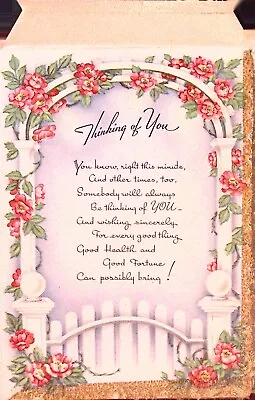 Thinking of You
You know, right this minute,
And other times, too,
Somebody will always
Be thinking of YOU—
And wishing sincerely
For every good thing
Good Health and
Good Fortune
Can possibly bring!